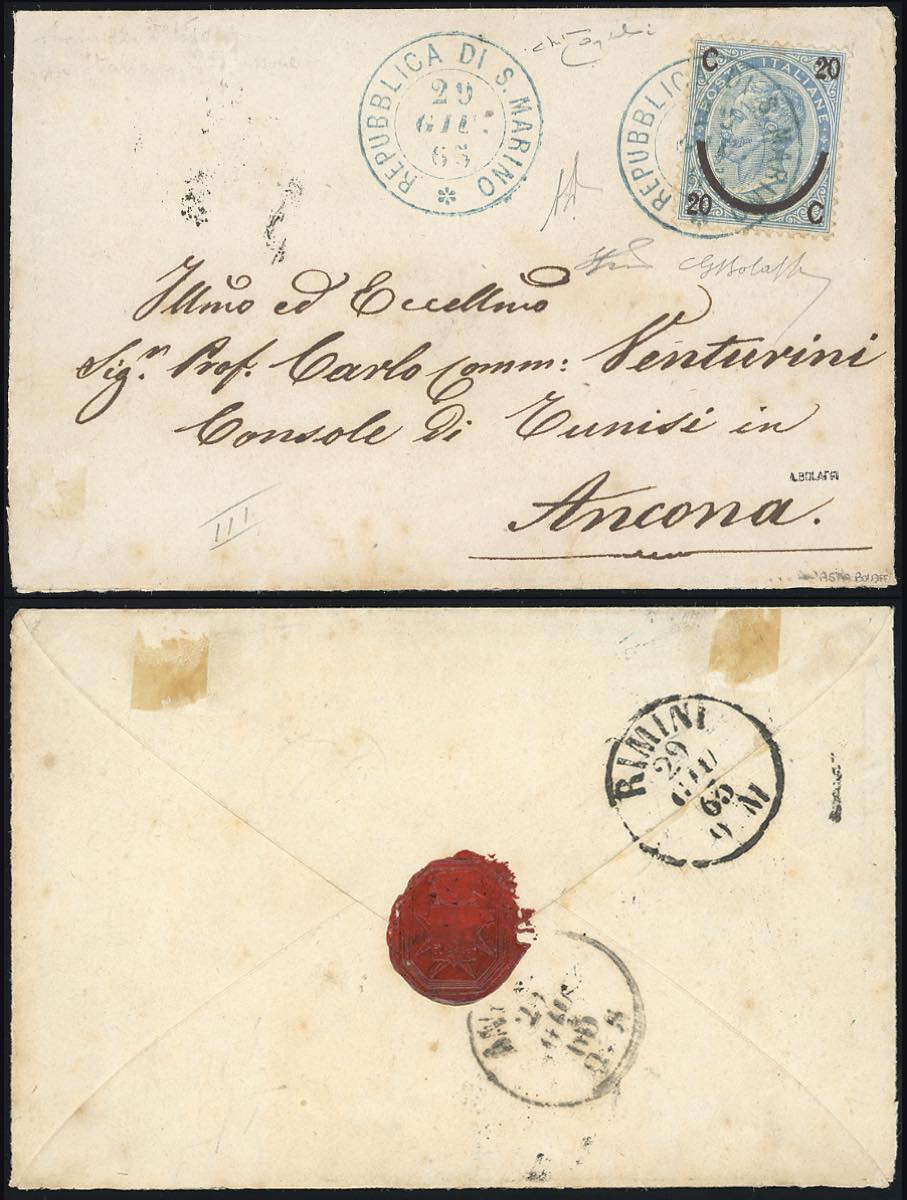 REPUBBLICA DI S. MARINO
29
GIU.
65
REPUBBLICA DI S. MARINO
C 20
POSTE ITALIANE
20 C
Illmo ed Eccellmo
Sigr. Prof. Carlo Comm: Venturini
Console di Tunisi in
Ancona.
A. BOLAFFI
III
RIMINI
29
GIU
65
9 M